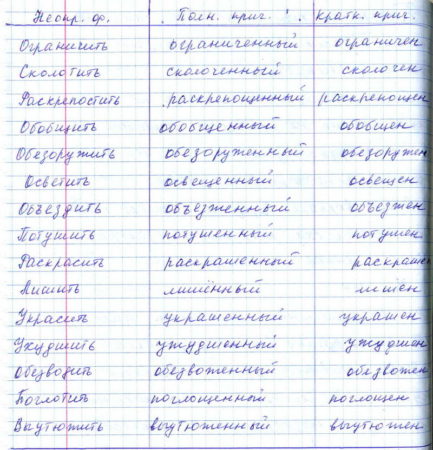 Неопр. ф. Полн. прич. Кратк. прич.
Ограничить ограниченный ограничен
Сколотить сколоченный сколочен
Раскрепостить раскрепощенный раскрепощен
Обобщить обобщенный обобщен
Обезоружить обезоруженный обезоружен
Осветить освещенный освещен
Объездить объезженный объезжен
Потушить потушенный потушен
Раскрасить раскрашенный раскрашен
Лишить лишённый лишен
Украсить украшенный украшен
Ухудшить ухудшенный ухудшен
Обезводить обезвоженный обезвожен
Поглотить поглощенный поглощен
Выутюжить выутюженный выутюжен